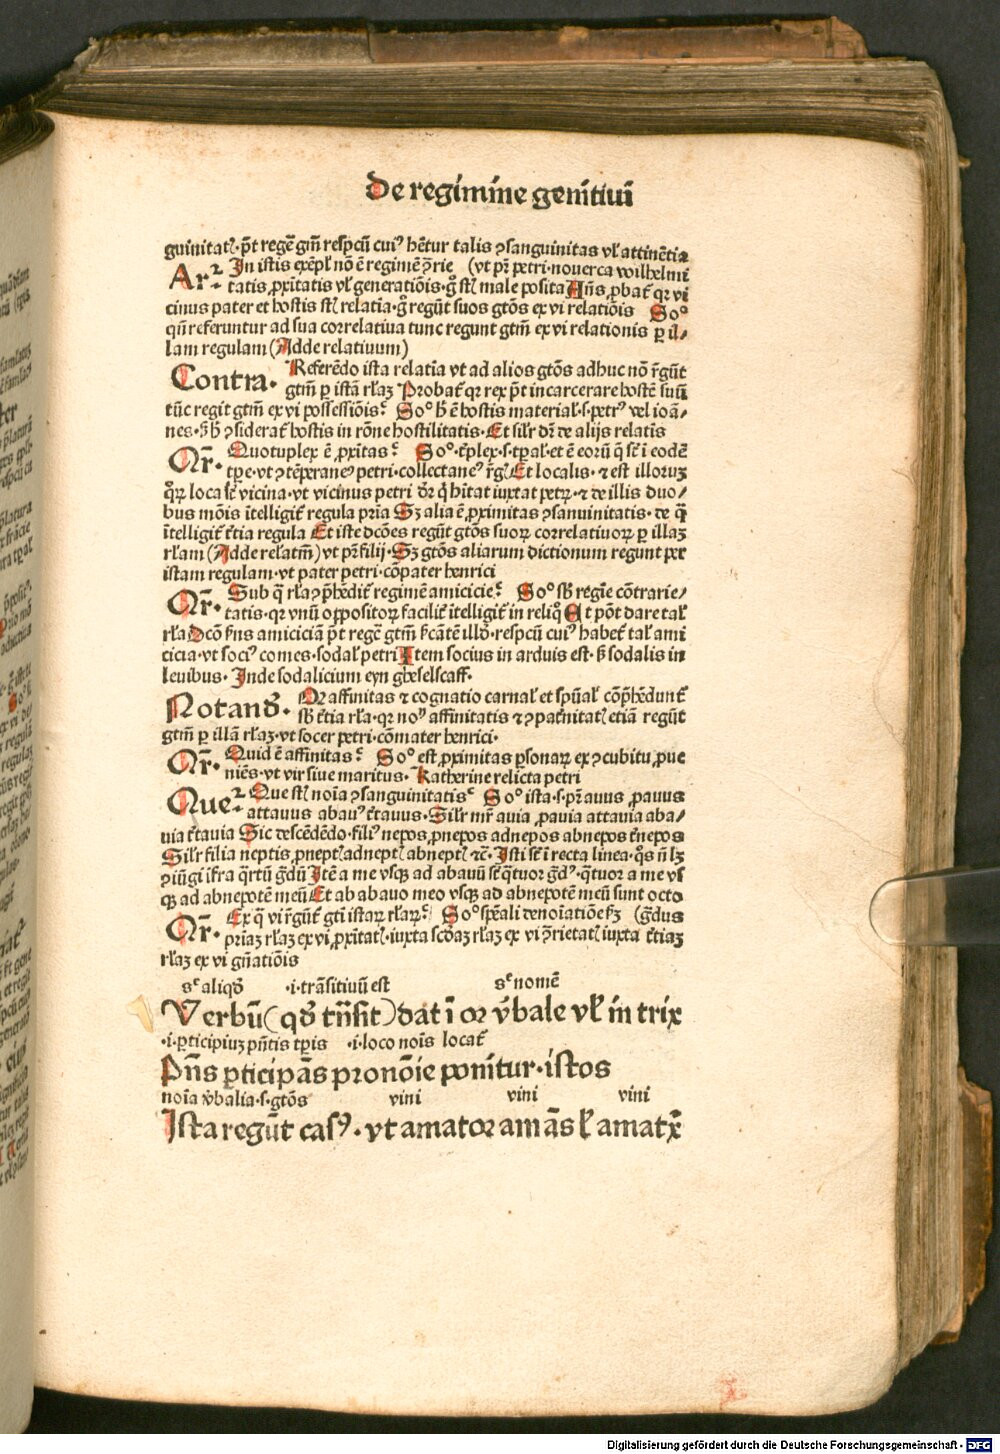 de regimine genitiui
guinitatꝭ·p̄t regē gtm̄ respcū cuiꝰ hētur talis ꝯsanguinitas vł attinētia
Arꝛ· In istis exēpł nō ē regimē ꝓrie (vt pr̄ petri·nouerca wilhelmi
tatis ꝓxitatis vł generatiōis·g̊ stꝭ male posita Añs ꝓbat᷑ qꝛ vi
cinus pater et hostis stꝭ relatia·g̊ regūt suos gtōs ex vi relatiōis Soº
qn̄ referuntur ad sua correlatiua tunc regunt gtm̄ ex vi relationis ꝑ il/
lam regulam (Adde relatiuum)
Contra· Referēdo ista relatia vt ad alios gtōs adhuc nō rg̃ūt
gtm̄ ꝑ istā rłaꝫ Probat᷑ qꝛ rex p̄t incarcerare hostē suū
tūc regit gtm̄ ex vi possessiōis? Soº h̄ ē hostis material·s·petrꝰ vel ioā/
nes·s̄ h̄ ꝯsiderat᷑ hostis in rōne hostilitatis·Et silr dr̄ de alijs relatis
Qr̄· Quotuplex ē ꝓxitas? Soº·tp̄lex·s·tꝑał·et ē eorū q̄ st̄ ī eodē
tꝑe·vt ꝯtēperaneꝰ petri·collectaneꝰ rg̃ꝭ Et localis·⁊ est illoruꝫ
qꝝ loca st̄ vicina·vt vicinus petri dr̄ q̇ hītat iuxtat petꝝ·⁊ de illis duo/
bus mōis ītelligit᷑ regula pria Sꝫ alia ē ꝓximitas ꝯsanuinitatis·de q̄
ītelligit᷑ t̄tia regula Et iste dcōes regūt gtōs suoꝝ correlatiuoꝝ ꝑ illaꝫ
rłam (Adde relatm̄) vt pr̄ filij·Sꝫ gtōs aliarum dictionum regunt per
istam regulam·vt pater petri·cōpater henrici
Qr̄· Sub q̄ rła ꝯp̄hēdit᷑ regimē amicicie? Soº sb̄ regīe cōtrarie/
tatis·qꝛ vnū oppositoꝝ facilit᷑ ītelligit᷑ in reliq̊ At pōt dare tał
rła Dcō ſn̄s amiciciā p̄t regē gtm̄ ſcātē illd̄·respcū cuiꝰ habet᷑ tał ami
cicia·vt sociꝰ comes·sodał petri Item socius in arduis est·s̄ sodalis in
leuibus·Inde sodalicium eyn gheselscaff·
Notand̄· Qꝛ affinitas ⁊ cognatio carnał et spūał cōp̄hēdunt᷑
sb̄ t̄tia rła·qꝛ noꝰ affinitatis ⁊ ꝯpat̄nitatꝭ etiā regūt
gtm̄ ꝑ illā rłaꝫ·vt socer petri·cōmater henrici·
Qr̄· Quid ē affinitas? Soº est ꝓximitas ꝑsonaꝝ ex ꝯcubitu ꝓue
niēs·vt vir siue maritus·Katherine relicta petri
Queꝛ Que stꝭ noīa ꝯsanguinitatis? Soº ista·s·pr̄ auus ꝓauus
attauus abauꝰ t̄tauus·Silr mr̄ auia ꝓauia attauia aba/
uia t̄tauia Sic descēdēdo·filiꝰ nepos ꝓnepos adnepos abnepos t̄nepos
Silr filia neptis ꝓneptꝭ adneptꝭ abneptꝭ ⁊c̄·Isti st̄ ī recta linea·q̊s n̄ lꝫ
ꝯiūgi īfra q̄rtū g̃dū Itē a me vsqꝫ ad abauū st̄ q̄tuor g̃dꝰ·q̄tuor a me vs
qꝫ ad abnepotē meū Et ab abauo meo vsqꝫ ad abnepotē meū sunt octo
Qr̄· Ex q̄ vi rg̃ūt᷑ gti istaꝝ rłaꝝ? Soº spēali denoīatiōe sꝫ (g̃dus
priaꝫ rłaꝫ ex vi ꝓxitatꝭ·iuxta scdaꝫ rłaꝫ ex vi ꝯrietatꝭ iuxta t̄tiaꝫ
rłaꝫ ex vi gn̄atiōis
sᶜ aliqd̄ ·i·trāsitiuū est sᶜ nomē
Verbū (qd̄ trn̄sit) dat ī or v̄bale vł in trix
·i·ꝑticipiuꝫ pn̄tis tꝑis ·i·loco nois locat᷑
Pn̄s ꝑticipās pronoīe ponitur·istos
noīa v̄balia·s·gtōs vini vini vini
Ista regūt casꝰ·vt amator amās ł amatx̄
Digitalisierung gefördert durch die Deutsche Forschungsgemeinschaft - DFG